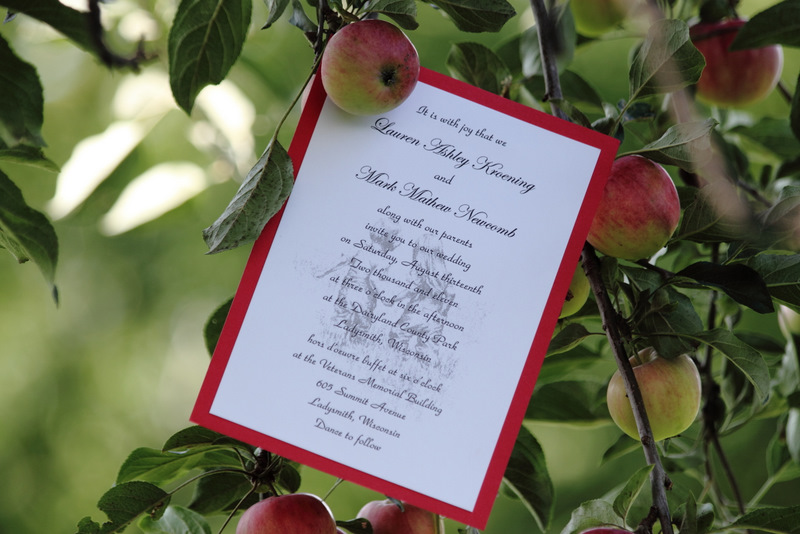 It is with joy that we
Lauren Ashley Kroening
and
Mark Mathew Newcomb
along with our parents
invite you to our wedding
on Saturday, August thirteenth
Two thousand and eleven
at three o'clock in the afternoon
at the Dairyland County Park
Ladysmith, Wisconsin
hors d'oeuvre buffet at six o'clock
at the Veterans Memorial Building
605 Summit Avenue
Ladysmith, Wisconsin
Dance to follow